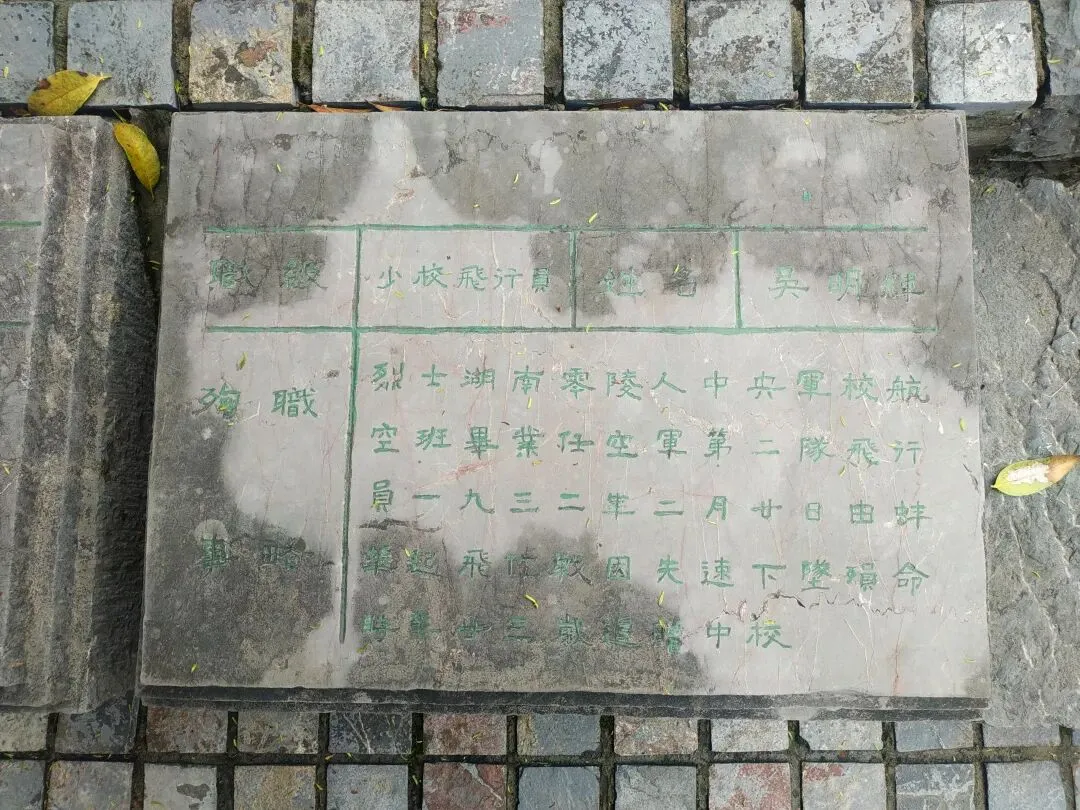 職級 少校飛行員 姓名 吳明輝
殉職事略
烈士湖南零陵人中央軍校航
空班畢業任空軍第二隊飛行
員一九三二年二月廿日由蚌
埠起飛作戰因失速下墜殞命
時年廿三歲追贈中校